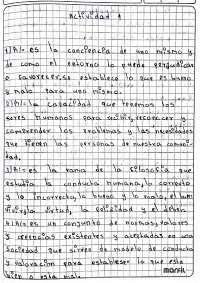 Actividad 1
1) A)= es la conciencia de uno mismo y
de como el entorno lo puede perjudicar
o favorecer, se establece lo que es bueno
y malo para uno mismo.
2) A)= la capacidad que tenemos los
seres humanos para sentir, reconocer y
comprender los problemas y las necesidades
que tienen las personas de nuestra comuni-
dad.
3) A)= es la rama de la filosofía que
estudia la conducta humana, lo correcto
y lo incorrecto, lo bueno y lo malo, el buen
vivir, la virtud, la felicidad y el deber.
4) A)= es un conjunto de normas, valores
y creencias existentes y aceptadas en una
sociedad que sirven de modelo de conducta
y valoración para establecer lo que esta
bien o esta mal.